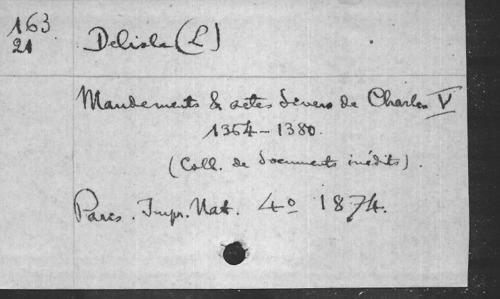 163
21
Delisle (L)
Mandements & actes divers de Charles V
1364-1380.
(Coll. de documents inédits).
Paris. Impr. Nat. 4º 1874.